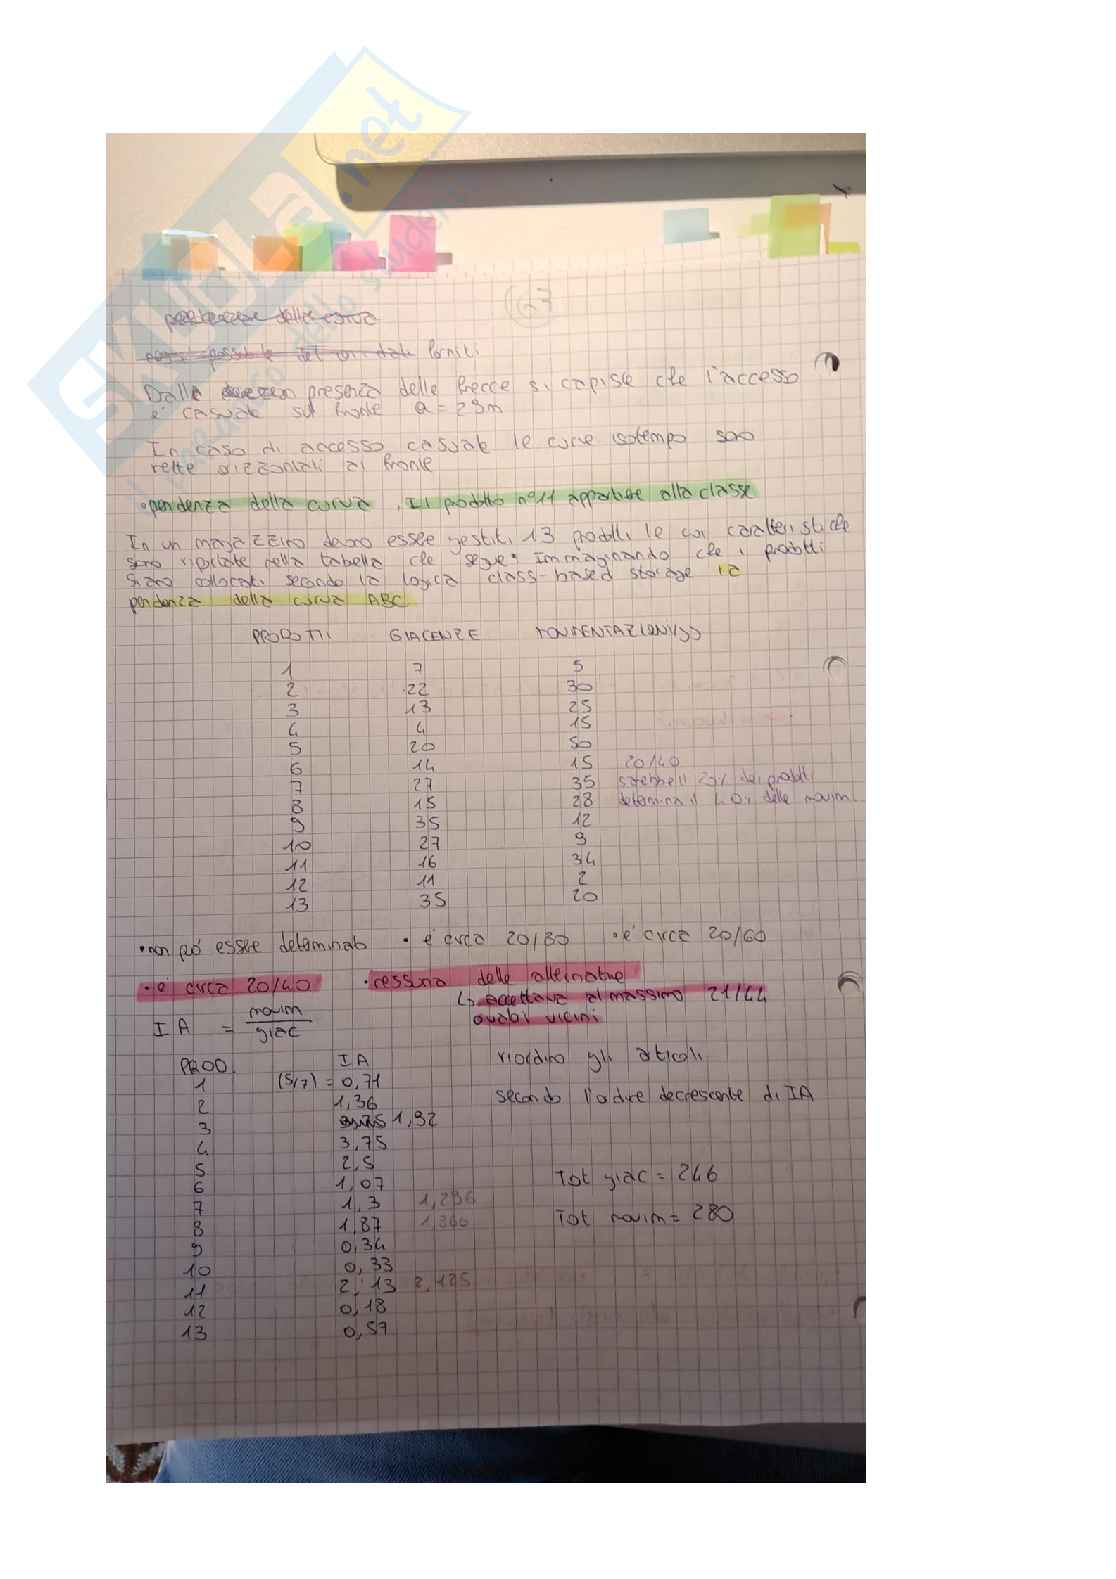 SKUOLA.net
67
forniti
Dalla presenza delle frecce si capisce che l'accesso
è casuale sul fronte a = 29m
In caso di accesso casuale le curve isotempo sono
rette orizzontali al fronte
• pendenza della curva , Il prodotto n°11 appartiene alla classe
In un magazzino devono essere gestiti 13 prodotti le cui caratteristiche
sono riportate nella tabella che segue: Immaginando che i prodotti
siano collocati secondo la logica class-based storage la
pendenza della curva ABC
PRODOTTI GIACENZE MOVIMENTAZIONI/gg
1 7 5
2 22 30
3 13 25
4 4 15
5 20 50
6 14 15 20/40
7 27 35 sarebbe il 20% dei prodotti
8 15 28 determina il 40% delle movim.
9 35 12
10 27 9
11 16 34
12 11 2
13 35 20
• non può essere determinato • è circa 20/80 • è circa 20/60
• è circa 20/40 • nessuna delle alternative
↳ accettava al massimo 21/44
valori vicini
IA = movim/giac
PROD. IA riordino gli articoli
1 (5/7) = 0,71
2 1,36 secondo l'ordine decrescente di IA
3 1,92
4 3,75
5 2,5
6 1,07 Tot giac = 246
7 1,3 1,296
8 1,87 1,866 Tot movim = 280
9 0,34
10 0,33
11 2,13 2,125
12 0,18
13 0,57